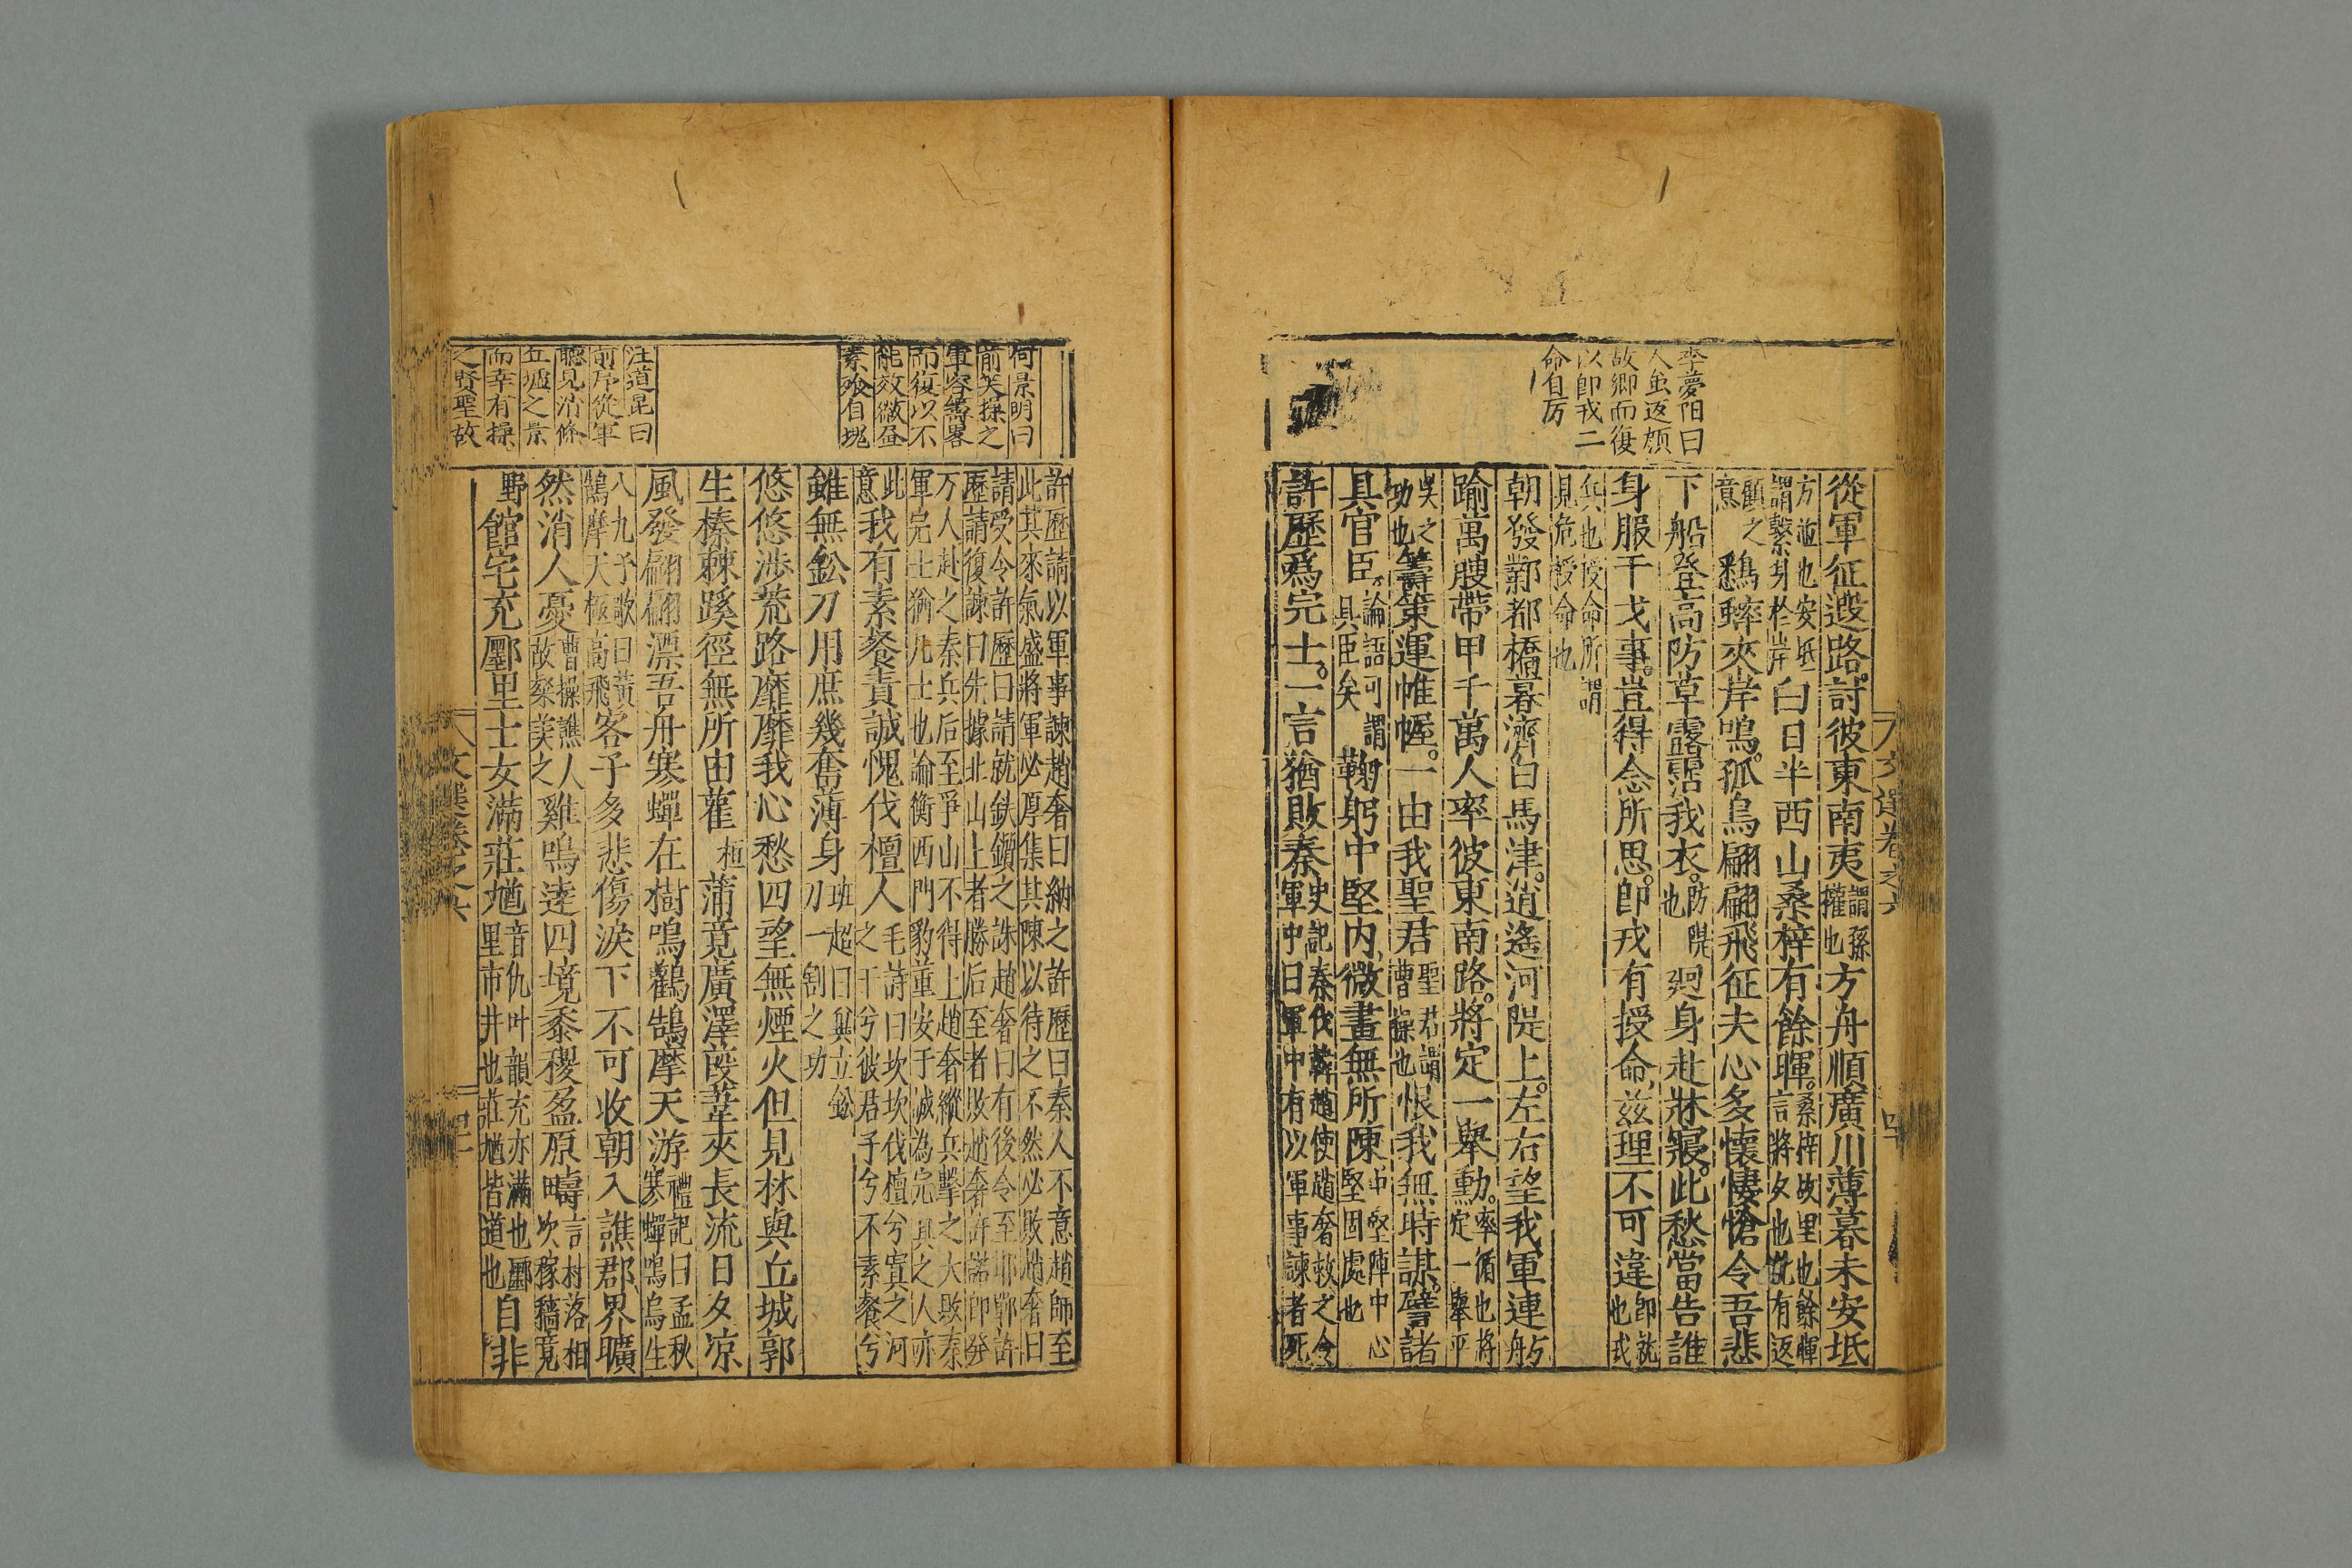 李夢陽曰
人虽返頋
故鄉而復
以卽戎二
命自厉
從軍征遐路討彼東南夷謂孫權也方舟順廣川薄暮未安坻
方泭也安坻謂繫舟於岸白日半西山桑梓有餘暉桑梓故里也餘暉言將夕也
顧之意蟋蟀夾岸鳴孤鳥翩翩飛征夫心多懷悽愴令吾悲
下船登高防草露霑我衣防隄也廻身赴牀寢此愁當告誰
身服干戈事豈得念所思卽戎有授命兹理不可違卽就也戎
兵也授命所謂見危授命也
朝發鄴都橋暮濟白馬津逍遙河隄上左右望我軍連舫
踰萬艘帶甲千萬人率彼東南路將定一舉勳率循也將定一舉平
吳之功也籌策運帷幄一由我聖君聖君謂曹操也恨我無時謀譬諸
具官臣論語可謂具臣矣鞠躬中堅內微畫無所陳中堅陣中心堅固處也
許歷爲完士一言猶敗秦史記秦伐韓趙使趙奢救之令軍中曰軍中有以軍事諫者死
文選卷之六
何景明曰
前美操之
軍容籌畧
而復以不
能效微昼
素飱自愧
汪道昆曰
前序從軍
聽見消條
丘墟之景
而幸有操
之賢聖故
許歷請以軍事諫趙奢曰納之許歷曰秦人不意趙師至
此其來氣盛將軍必厚集其陳以待之不然必敗趙奢曰
請受令許歷曰請就鈇鑕之誅趙奢曰有後令至邯鄲許
歷請復諫曰先據北山上者勝后至者敗趙奢許諾卽發
万人赴之秦兵后至爭山不得上趙奢縱兵擊之大敗秦
軍完士猶凡士也論衡西門豹董安于誠為完具之人亦
此意我有素餐責誠愧伐檀人毛詩曰坎坎伐檀兮寘之河之干兮彼君子兮不素餐兮
雖無鈆刀用庶幾奮薄身班超曰與立鈆刀一割之功
悠悠涉荒路靡靡我心愁四望無煙火但見林與丘城郭
生榛棘蹊徑無所由雚桓蒲竟廣澤葭葦夾長流日夕凉
風發翩翩漂吾舟寒蟬在樹鳴鸛鵠摩天游禮記曰孟秋寒蟬鳴烏生
八九子歌曰黄鵠摩天極高飛客子多悲傷淚下不可收朝入譙郡界曠
然消人憂曹操譙人故粲美之雞鳴達四境黍稷盈原疇言村落相次稼穡竟
野館宅充廛里士女滿莊馗音仇叶韻充亦滿也廛里市井也莊馗皆道也自非
文選卷之六